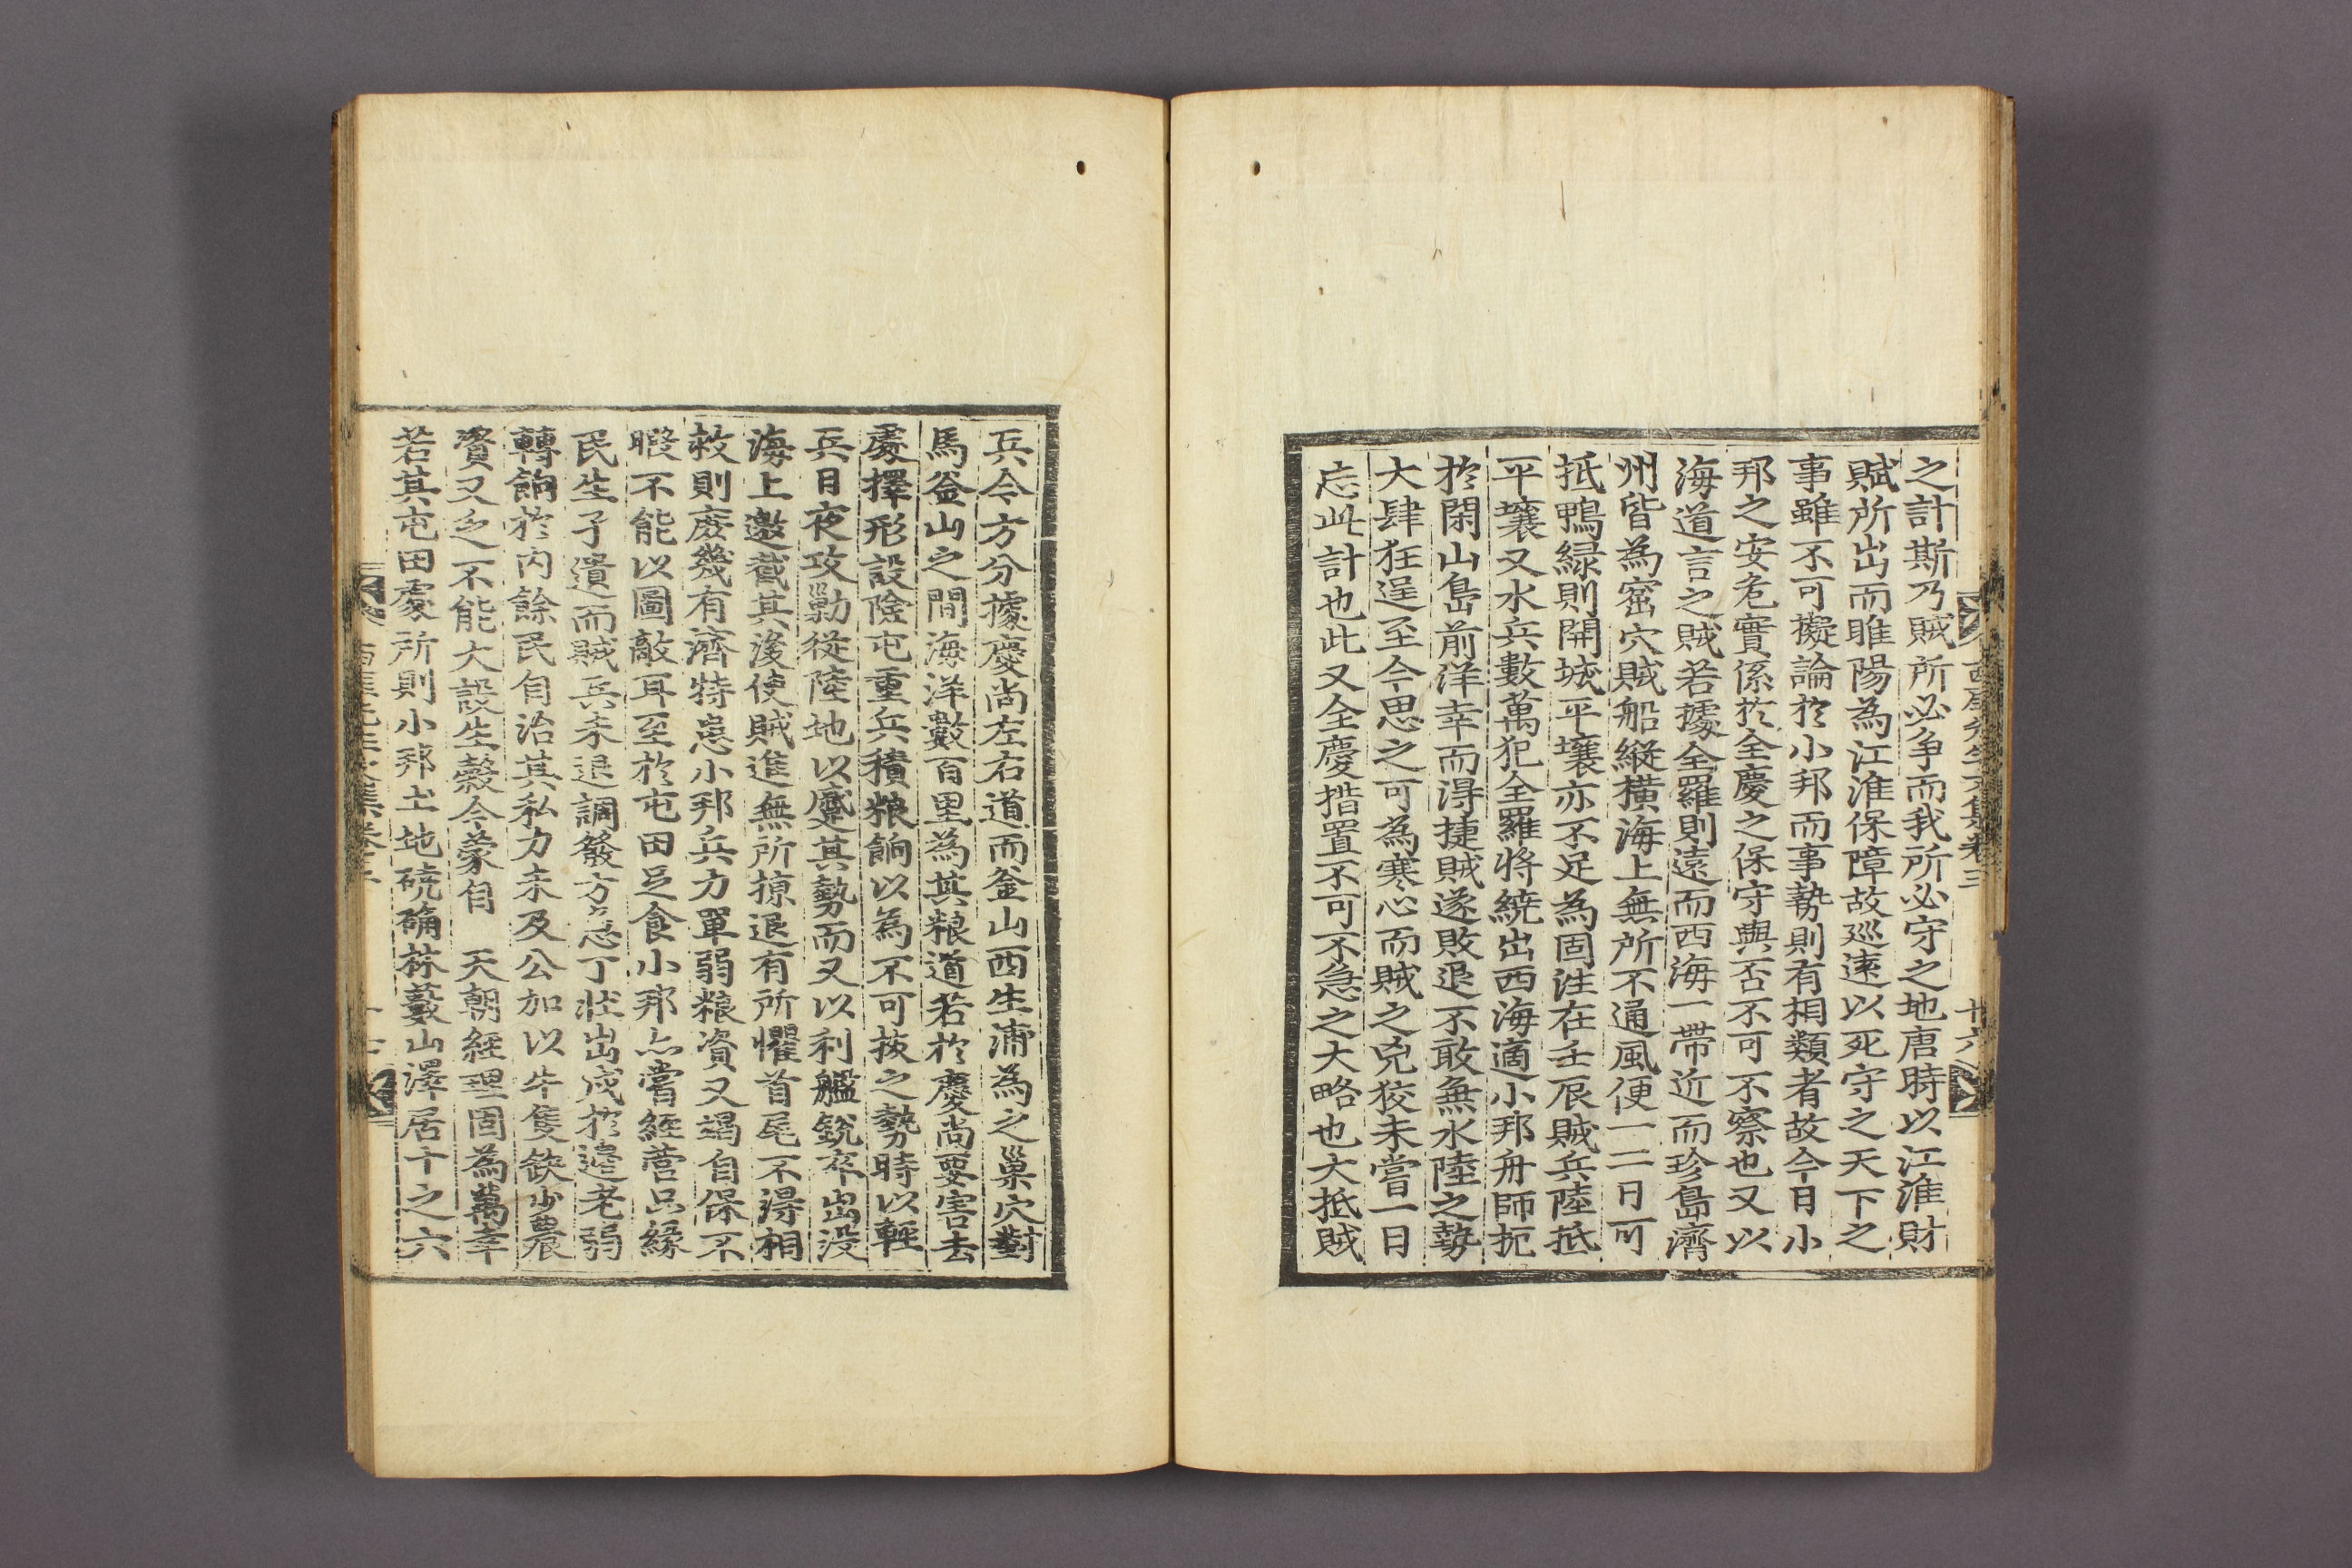 之計斯乃賊所必争而我所必守之地唐時以江淮財
賦所出而睢陽為江淮保障故廵遠以死守之天下之
事雖不可擬論於小邦而事勢則有相類者故今日小
邦之安危實係於全慶之保守與否不可不察也又以
海道言之賊若據全羅則遠而西海一帶近而珍島濟
州皆為窟穴賊船縱橫海上無所不通風便一二日可
抵鴨緑則開城平壤亦不足為固徃在壬辰賊兵陸抵
平壤又水兵數萬犯全羅將繞出西海適小邦舟師扼
於閑山島前洋幸而淂捷賊遂敗退不敢無水陸之勢
大肆狂逞至今思之可為寒心而賊之兇狡未嘗一日
忘此計也此又全慶措置不可不急之大略也大抵賊
西厓先生文集卷三 十六
兵今方分據慶尚左右道而釜山西生浦為之巢穴對
馬釜山之間海洋數百里為其粮道若於慶尚要害去
處擇形設險屯重兵積粮餉以為不可拔之勢時以輕
兵日夜攻勦從陸地以蹙其勢而又以利艦銳卒出沒
海上邀截其後使賊進無所掠退有所懼首尾不淂相
救則庶幾有濟特患小邦兵力單弱粮資又竭自保不
暇不能以圖敵耳至於屯田足食小邦亦嘗經營只緣
民生孑遺而賊兵未退調發方急丁壯出戍於邊老弱
轉餉於內餘民自治其私力未及公加以牛隻缺少農
資又乏不能大設生穀今蒙自 天朝經理固為萬幸
若其屯田處所則小邦土地磽确林藪山澤居十之六